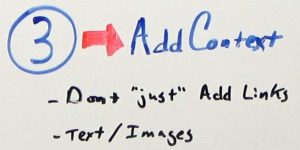 3 Add Context
- Dont "just" Add Links
- Text/Images